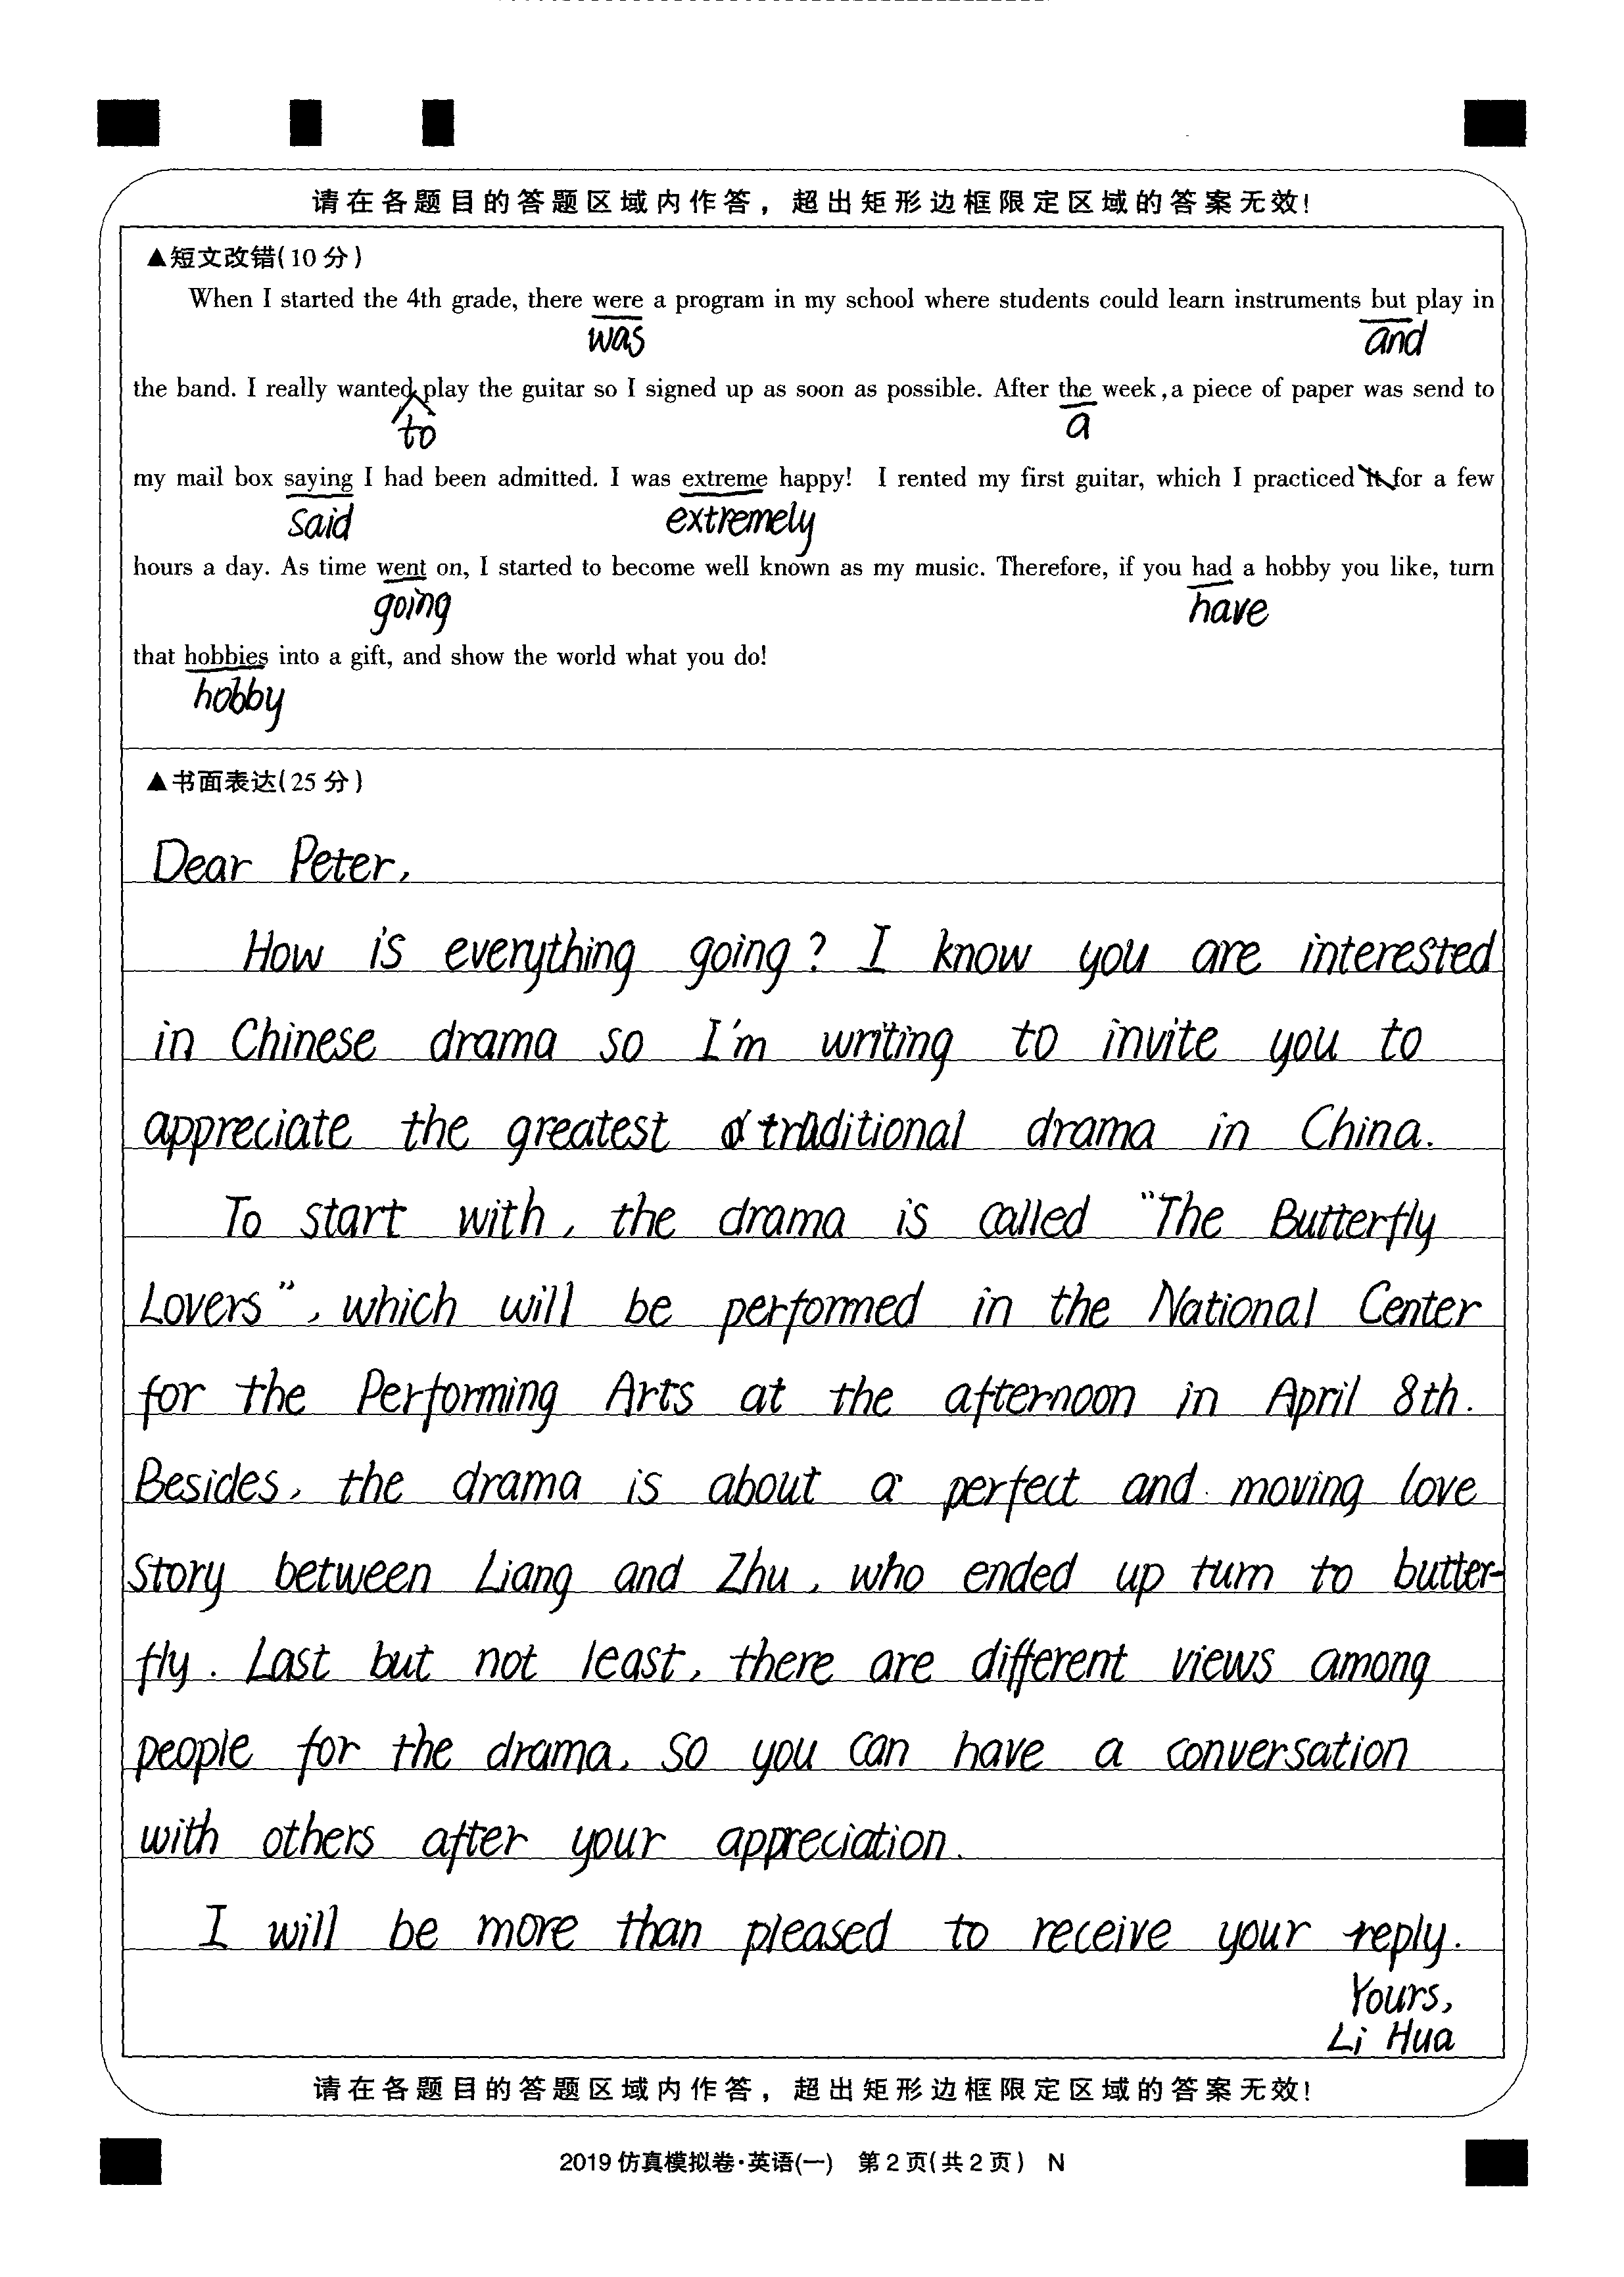 请在各题目的答题区域内作答，超出矩形边框限定区域的答案无效!
▲短文改错(10分)
When I started the 4th grade, there were a program in my school where students could learn instruments but play in
was and
the band. I really wanted play the guitar so I signed up as soon as possible. After the week, a piece of paper was send to
to a
my mail box saying I had been admitted. I was extreme happy! I rented my first guitar, which I practiced it for a few
said extremely
hours a day. As time went on, I started to become well known as my music. Therefore, if you had a hobby you like, turn
going have
that hobbies into a gift, and show the world what you do!
hobby
▲书面表达(25分)
Dear Peter,
How is everything going? I know you are interested
in Chinese drama so I'm writing to invite you to
appreciate the greatest traditional drama in China.
To start with, the drama is called "The Butterfly
Lovers", which will be performed in the National Center
for the Performing Arts at the afternoon in April 8th.
Besides, the drama is about a perfect and moving love
story between Liang and Zhu, who ended up turn to butter-
fly. Last but not least, there are different views among
people for the drama, so you can have a conversation
with others after your appreciation.
I will be more than pleased to receive your reply.
Yours,
Li Hua
请在各题目的答题区域内作答，超出矩形边框限定区域的答案无效!
2019仿真模拟卷·英语(一) 第2页(共2页) N